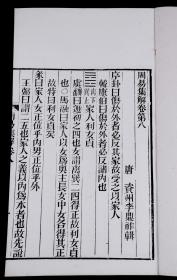 周易集解卷第八
唐 資州李鼎祚輯
序卦曰傷於外者必反其家故受之以家人
韓康伯曰傷於外必反諸內也
家人利女貞
也馬融曰家人以女爲奥主長女中女各得其正
故特曰利女貞矣
彖曰家人女正位乎內男正位乎外
王弼曰謂二五也家人之義以內爲本者也故先說